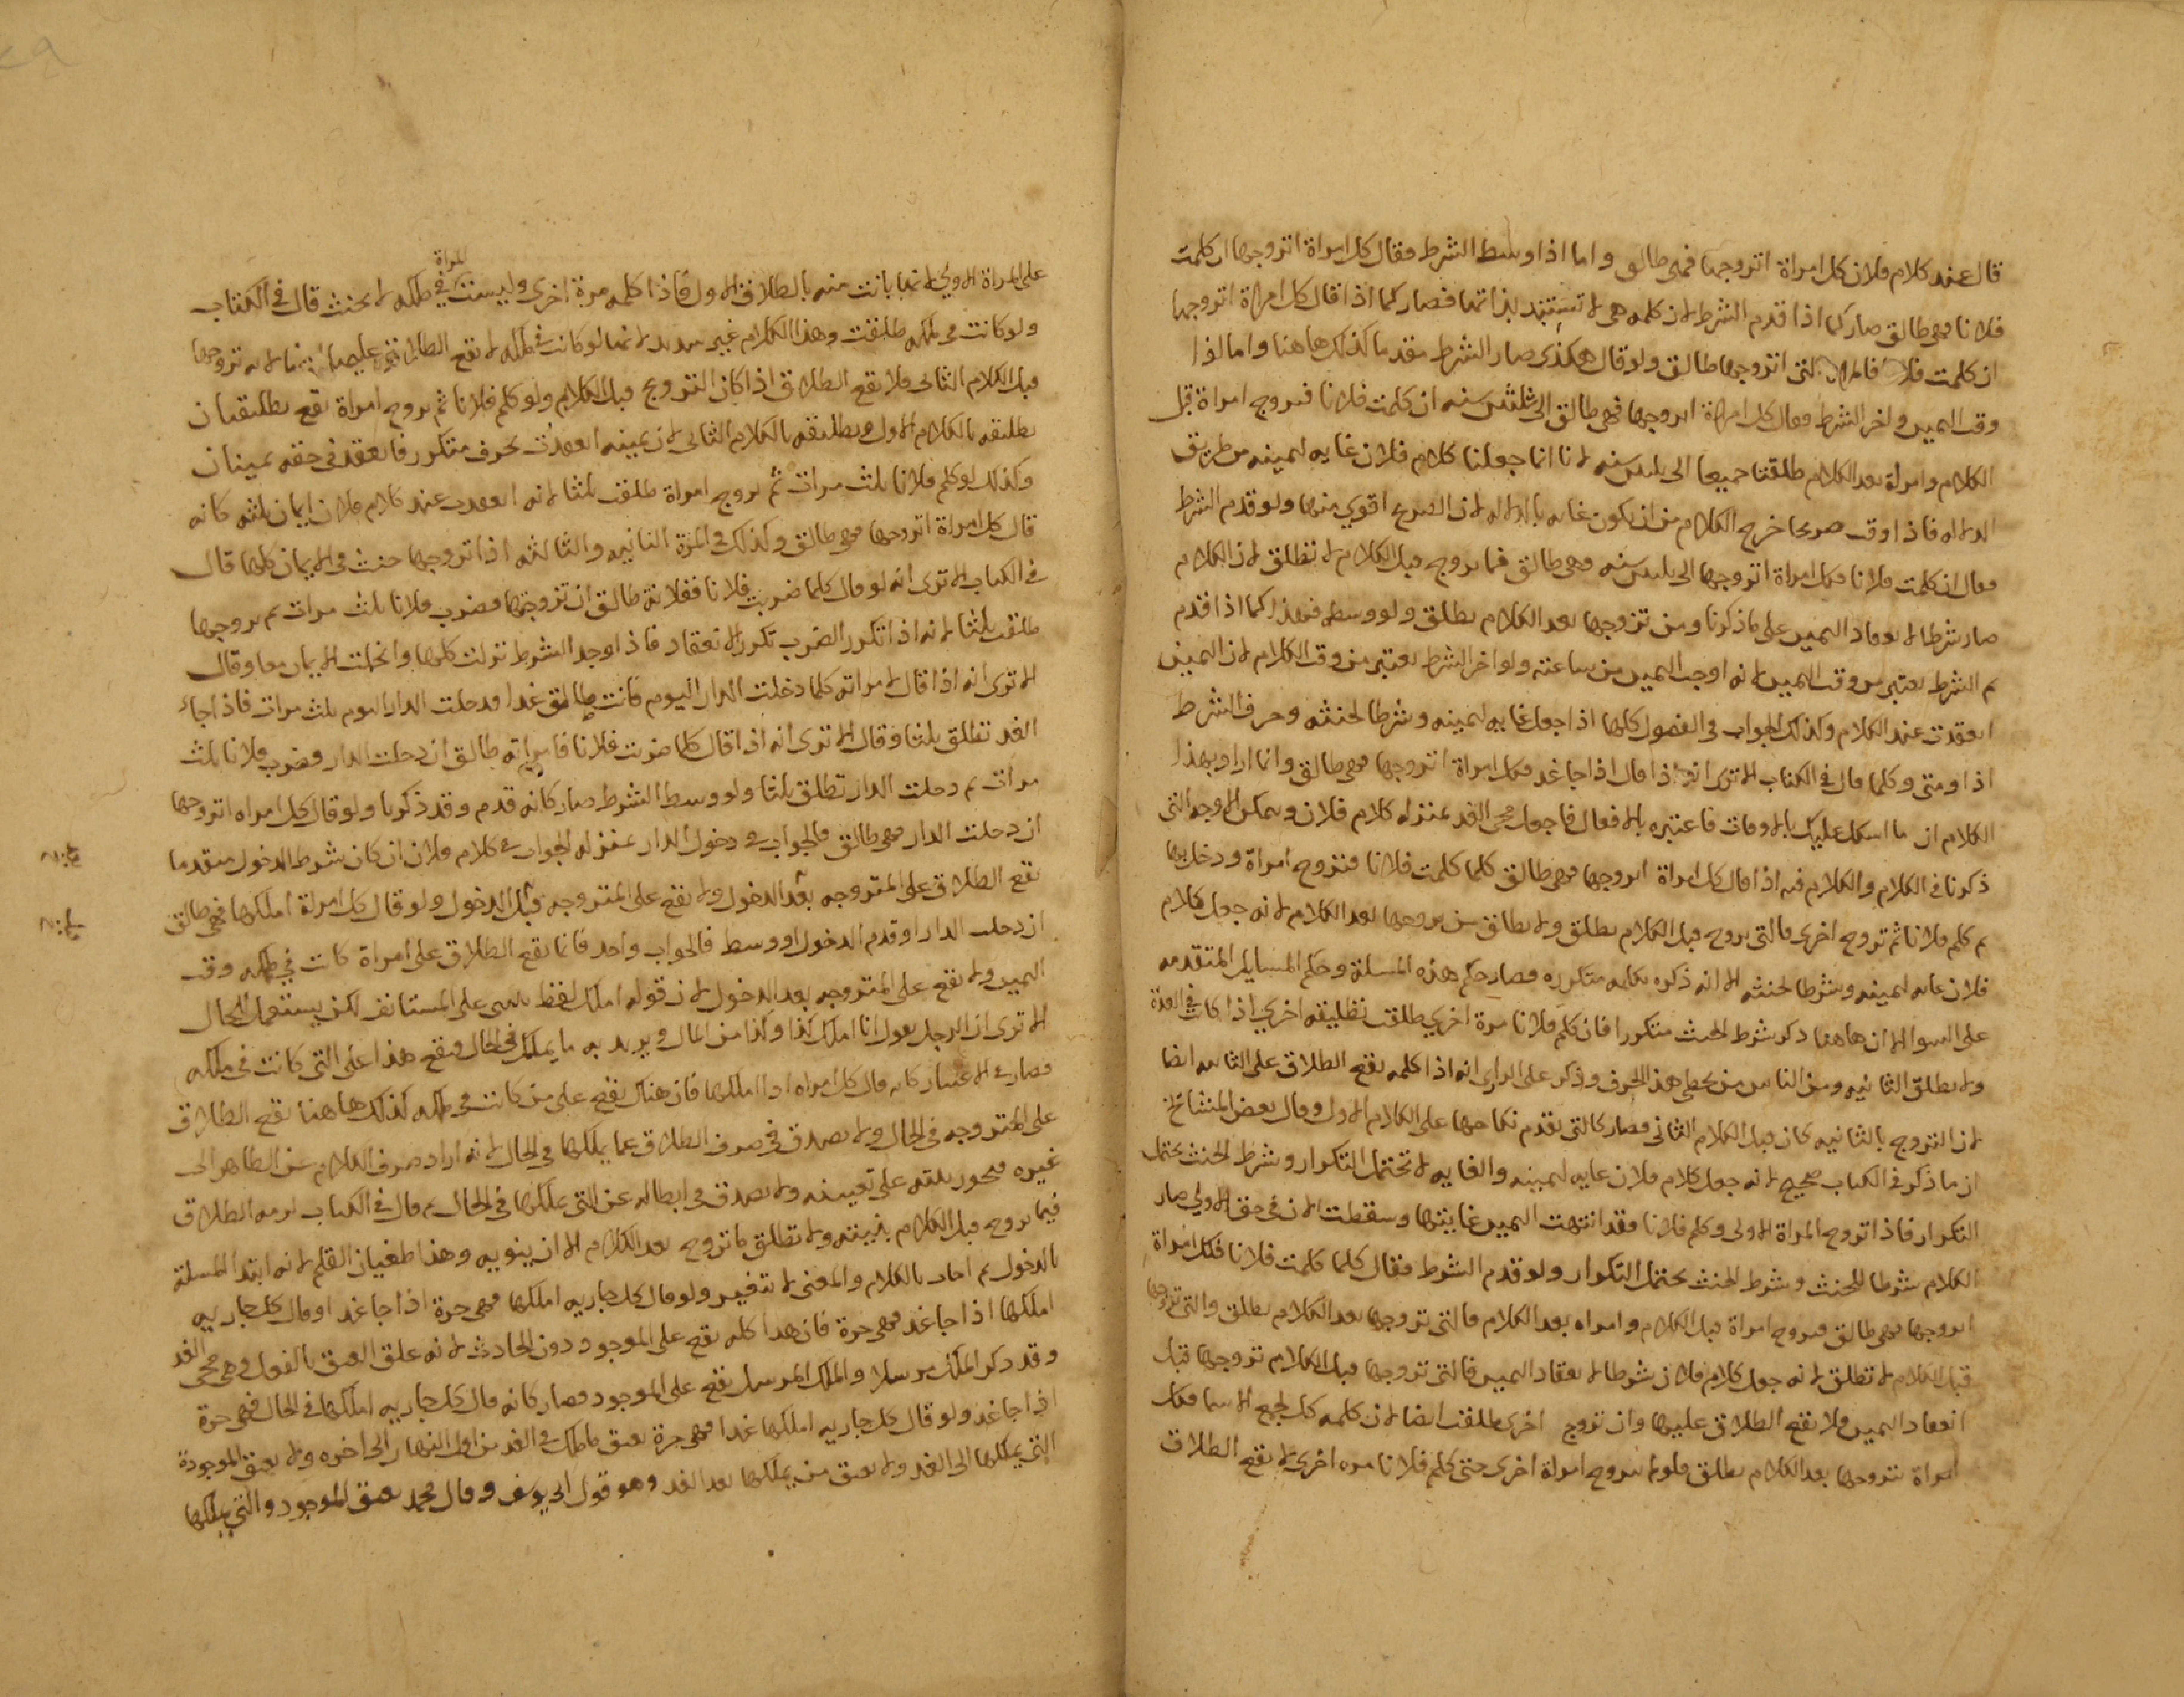 قال عند كلام فلان كل امراة اتزوجها فهي طالق واما اذا وسط الشرط فقال كل امراة اتزوجها ان كلمت
فلانا فهي طالق صار كما اذا قدم الشرط لان كلمه هي لا تستبد بذاتها فصار كما اذا قال كل امراة اتزوجها
ان كلمت فلانا فالمراة التي اتزوجها طالق ولو قال هكذى صار الشرط مقدما كذلك هاهنا واما اذا
وقت اليمين واخر الشرط فقال كل امراة اتزوجها فهي طالق الى ثلثين سنه ان كلمت فلانا فتزوج امراة قبل
الكلام وامراة بعد الكلام طلقتا جميعا الى ثلثين سنه لانا انما جعلنا كلام فلان غايه ليمينه من طريق
الدلاله فاذا وقت صريحا خرج الكلام من ان يكون غايه بالدلاله لان الصريح اقوي منها ولو قدم الشرط
فقال ان كلمت فلانا فكل امراة اتزوجها الى ثلثين سنه فهي طالق فما تزوج قبل الكلام لا تطلق لان الكلام
صار شرطا لانعقاد اليمين على ما ذكرنا ومن تزوجها بعد الكلام تطلق ولو وسطه فهذا كما اذا قدم
ثم الشرط يعتبر من وقت اليمين لانه اوجب اليمين من ساعته ولو اخر الشرط يعتبر من وقت الكلام لان اليمين
انعقدت عند الكلام وكذلك الجواب في الفصول كلها اذا جعل غايه ليمينه وشرطا لحنثه وحرف الشرط
اذا ومتى وكلما قال في الكتاب الا ترى انه اذا قال اذا جا غد فكل امراة اتزوجها فهي طالق وانما اراد بهذا
الكلام ان ما اشكل عليك بالاوقات فاعتبره بالافعال فاجعل مجي الغد بمنزله كلام فلان ويمكن الاوجه التي
ذكرنا في الكلام والكلام فيه اذا قال كل امراة اتزوجها فهي طالق كلما كلمت فلانا فتزوج امراة ودخل بها
ثم كلم فلانا ثم تزوج اخرى فالتي تزوج قبل الكلام تطلق ولا تطلق من تزوجها بعد الكلام لانه جعل كلام
فلان غايه ليمينه وشرطا لحنثه الا انه ذكره بكلمه متكرره فصار حكم هذه المسلة وحكم المسايل المتقدمه
على السوا الا ان هاهنا ذكر شرط الحنث متكررا فان كلم فلانا مرة اخري طلقت تطليقه اخري اذا كانت في العدة
ولا تطلق الثانيه ومن الناس من يخطي هذا الحرف وذكر على الراي انه اذا كلمه يقع الطلاق على الثانيه ايضا
لان التزوج بالثانيه كان قبل الكلام الثاني فصار كالتي تقدم نكاحها على الكلام الاول وقال بعض المشايخ
ان ما ذكر في الكتاب صحيح لانه جعل كلام فلان غايه ليمينه والغايه لا تحتمل التكرار وشرط الحنث يحتمل
التكرار فاذا تزوج المراة الاولى وكلم فلانا فقد انتهت اليمين غايتها وسقطت لان في حق الاولي صار
الكلام شرطا للحنث وشرط الحنث يحتمل التكرار ولو قدم الشرط فقال كلما كلمت فلانا فكل امراة
اتزوجها فهي طالق فتزوج امراة قبل الكلام وامراه بعد الكلام فالتي تزوجها بعد الكلام تطلق والتي تزوجها
قبل الكلام لا تطلق لانه جعل كلام فلان شرطا لانعقاد اليمين فالتي تزوجها قبل الكلام تزوجها قبل
انعقاد اليمين فلا يقع الطلاق عليها وان تزوج اخرى طلقت ايضا لان كلمه كل لجمع الاسما فكل
امراة تتزوجها بعد الكلام تطلق فلو لم يتزوج امراة اخرى حتى كلم فلانا مره اخرى لا يقع الطلاق
على المراة الاولي لانها بانت منه بالطلاق الاول فاذا كلمه مرة اخرى وليست المراة في ملكه لا يحنث قال في الكتاب
ولو كانت في ملكه طلقت وهذا الكلام غير سديد لانها لو كانت في ملكه لا يقع الطلاق عليها لانه تزوجها
قبل الكلام الثاني فلا يقع الطلاق اذا كان التزوج قبل الكلام ولو كلم فلانا ثم تزوج امراة تقع تطليقتان
تطليقه بالكلام الاول وتطليقه بالكلام الثاني لان يمينه انعقدت بحرف متكرر فانعقد في حقه يمينان
وكذلك لو كلم فلانا ثلث مرات ثم تزوج امراة طلقت ثلثا لانه انعقدت عند كلام فلان ايمان ثلثه كانه
قال كل امراة اتزوجها فهي طالق وكذلك في المرة الثانيه والثالثه اذا تزوجها حنث في الايمان كلها قال
في الكتاب الا ترى انه لو قال كلما ضربت فلانا ففلانة طالق ان تزوجتها فضرب فلانا ثلث مرات ثم تزوجها
طلقت ثلثا لانه اذا تكرر الضرب تكرر الانعقاد فاذا وجد الشرط نزلت كلها وانحلت الايمان معا وقال
الا ترى انه اذا قال لامراته كلما دخلت الدار اليوم فانت طالق غدا فدخلت الدار اليوم ثلث مرات فاذا جاء
الغد تطلق ثلثا وقال الا ترى انه اذا قال كلما ضربت فلانا فامراته طالق ان دخلت الدار فضرب فلانا ثلث
مرات ثم دخلت الدار تطلق ثلثا ولو وسط الشرط صار كانه قدم وقد ذكرنا ولو قال كل امراه اتزوجها
ان دخلت الدار فهي طالق فالجواب في دخول الدار بمنزله الجواب في كلام فلان ان كان شرط الدخول متقدما
يقع الطلاق على المتزوجه بعد الدخول ولا يقع على المتزوجه قبل الدخول ولو قال كل امراة املكها فهي طالق
ان دخلت الدار او قدم الدخول او وسط فالجواب واحد فانما يقع الطلاق على امراة كانت في ملكه وقت
اليمين ولا يقع على المتزوجه بعد الدخول لان قوله املك لفظ على المستانف لكن يستعمل للحال
الا ترى ان الرجل يقول انا املك كذا وكذا من المال ويريد به ما يملك في الحال فيقع هذا على التي كانت في ملكه
فصار كانه قال كل امراه املكها فان هناك يقع على من كانت في ملكه كذلك هاهنا يقع الطلاق
على المتزوجه في الحال ولا يصدق في صرف الطلاق عما يملكها في الحال لانه اراد صرف الكلام عن الظاهر الى
غيره على تعيينه ولا يصدق في ابطاله عن التي يملكها في الحال ثم قال في الكتاب لزمه الطلاق
فيما تزوج قبل الكلام بنيته ولا تطلق ما تزوج بعد الكلام الا ان ينويه وهذا طغيان القلم لانه ابتدا المسلة
بالدخول ثم اجاب بالكلام والمعنى لا يتغير ولو قال كل جاريه املكها فهي حرة اذا جا غد او قال كل جاريه
املكها اذا جا غد فهي حرة فان هذا كله يقع على الموجود دون الحادث لانه علق العتق بالفعل وهي مجي الغد
وقد ذكر الملك مرسلا والملك المرسل يقع على الموجود فصار كانه قال كل جاريه املكها في الحال فهي حرة
اذا جا غد ولو قال كل جاريه املكها غدا فهي حرة يعتق ما ملك في الغد من اول النهار الى اخره ولا يعتق الموجودة
التي يملكها الى الغد ولا يعتق من يملكها بعد الغد وهو قول ابي يوسف وقال محمد يعتق الموجود والتي يملكها